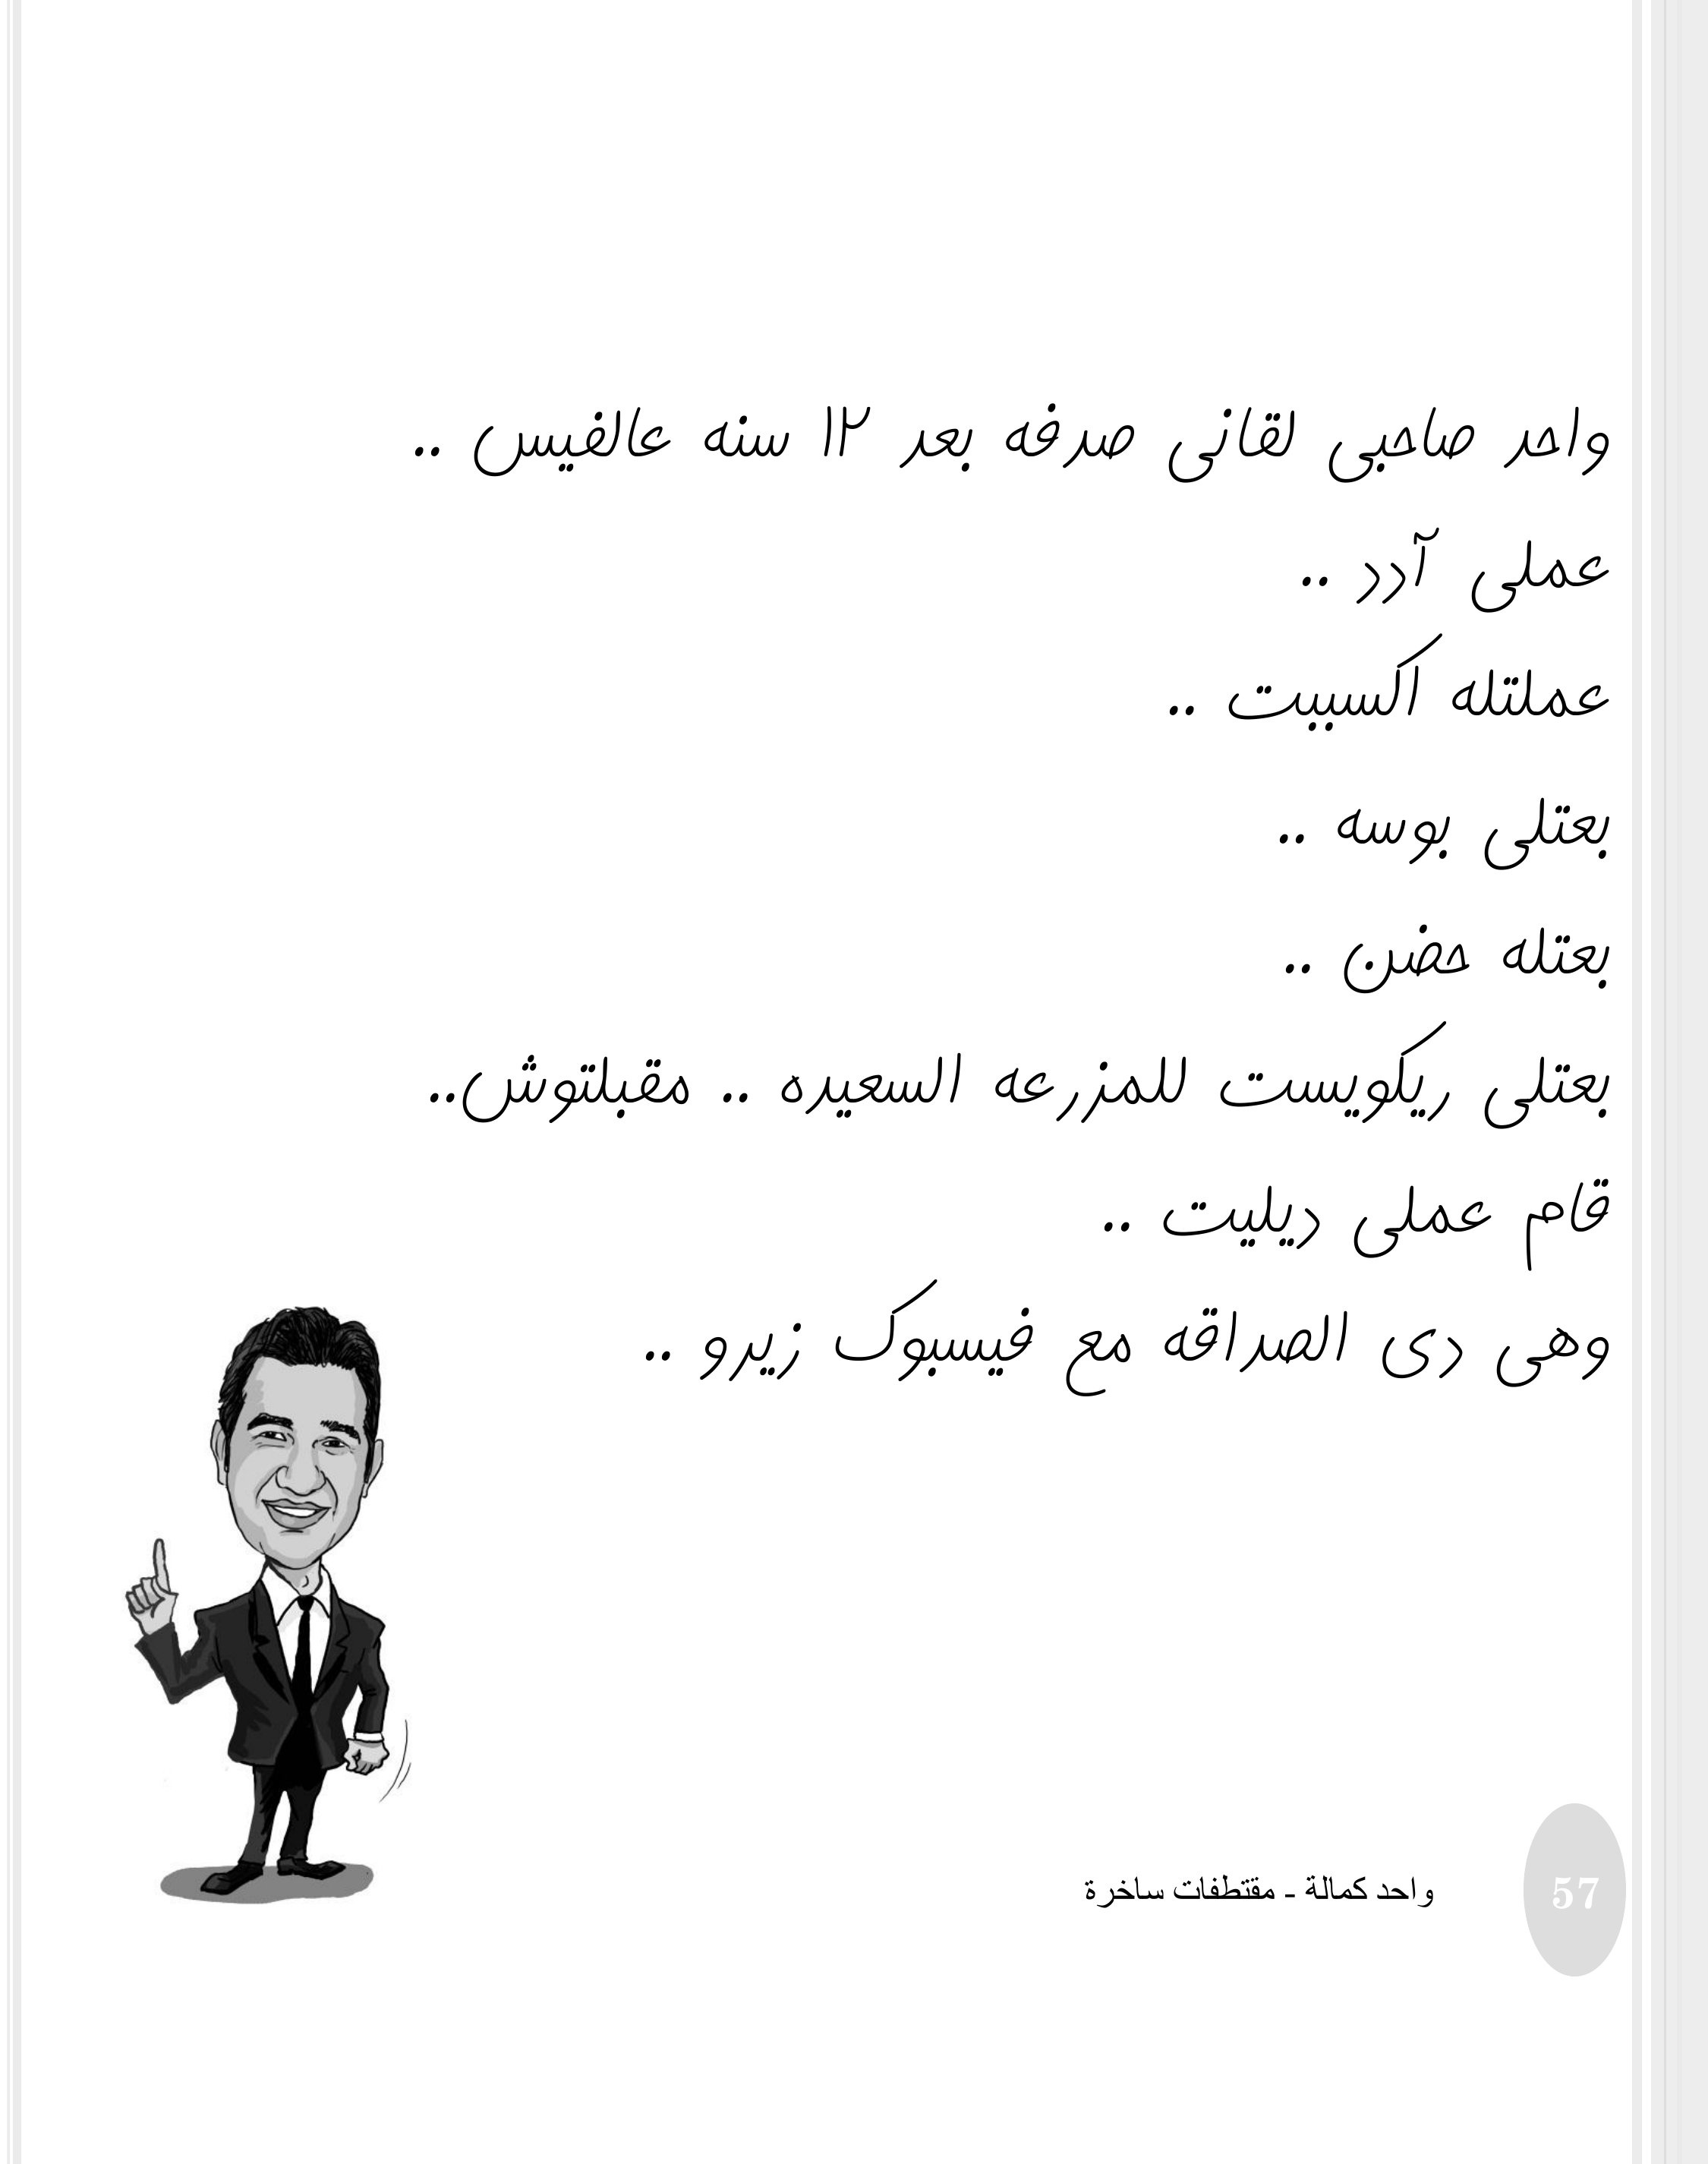 واحد صاحبى لقانى صدفه بعد ١٢ سنه عالفيس ..
عملى آدد ..
عملتله اكسيبت ..
بعتلى بوسه ..
بعتله حضن ..
بعتلى ريكويست للمزرعه السعيده .. مقبلتوش..
قام عملى ديليت ..
وهى دى الصداقه مع فيسبوك زيرو ..
واحد كمالة - مقتطفات ساخرة
57